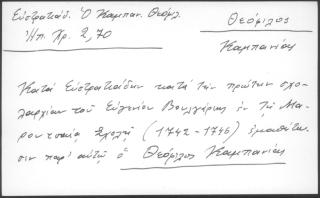 Εὐστρατιάδ. Ὁ Καμπαν. Θεόφιλ.
Ἠπ. Χρ. 2, 70
Θεόφιλος
Καμπανίας
Κατά Εὐστρατιάδην κατά τήν πρώτην σχο-
λαρχίαν τοῦ Εὐγενίου Βουλγάρεως ἐν τῇ Μα-
ρουτσαίᾳ Σχολῇ (1742-1746) ἐμαθήτευ-
σεν παρ' αὐτῷ ὁ Θεόφιλος Καμπανίας